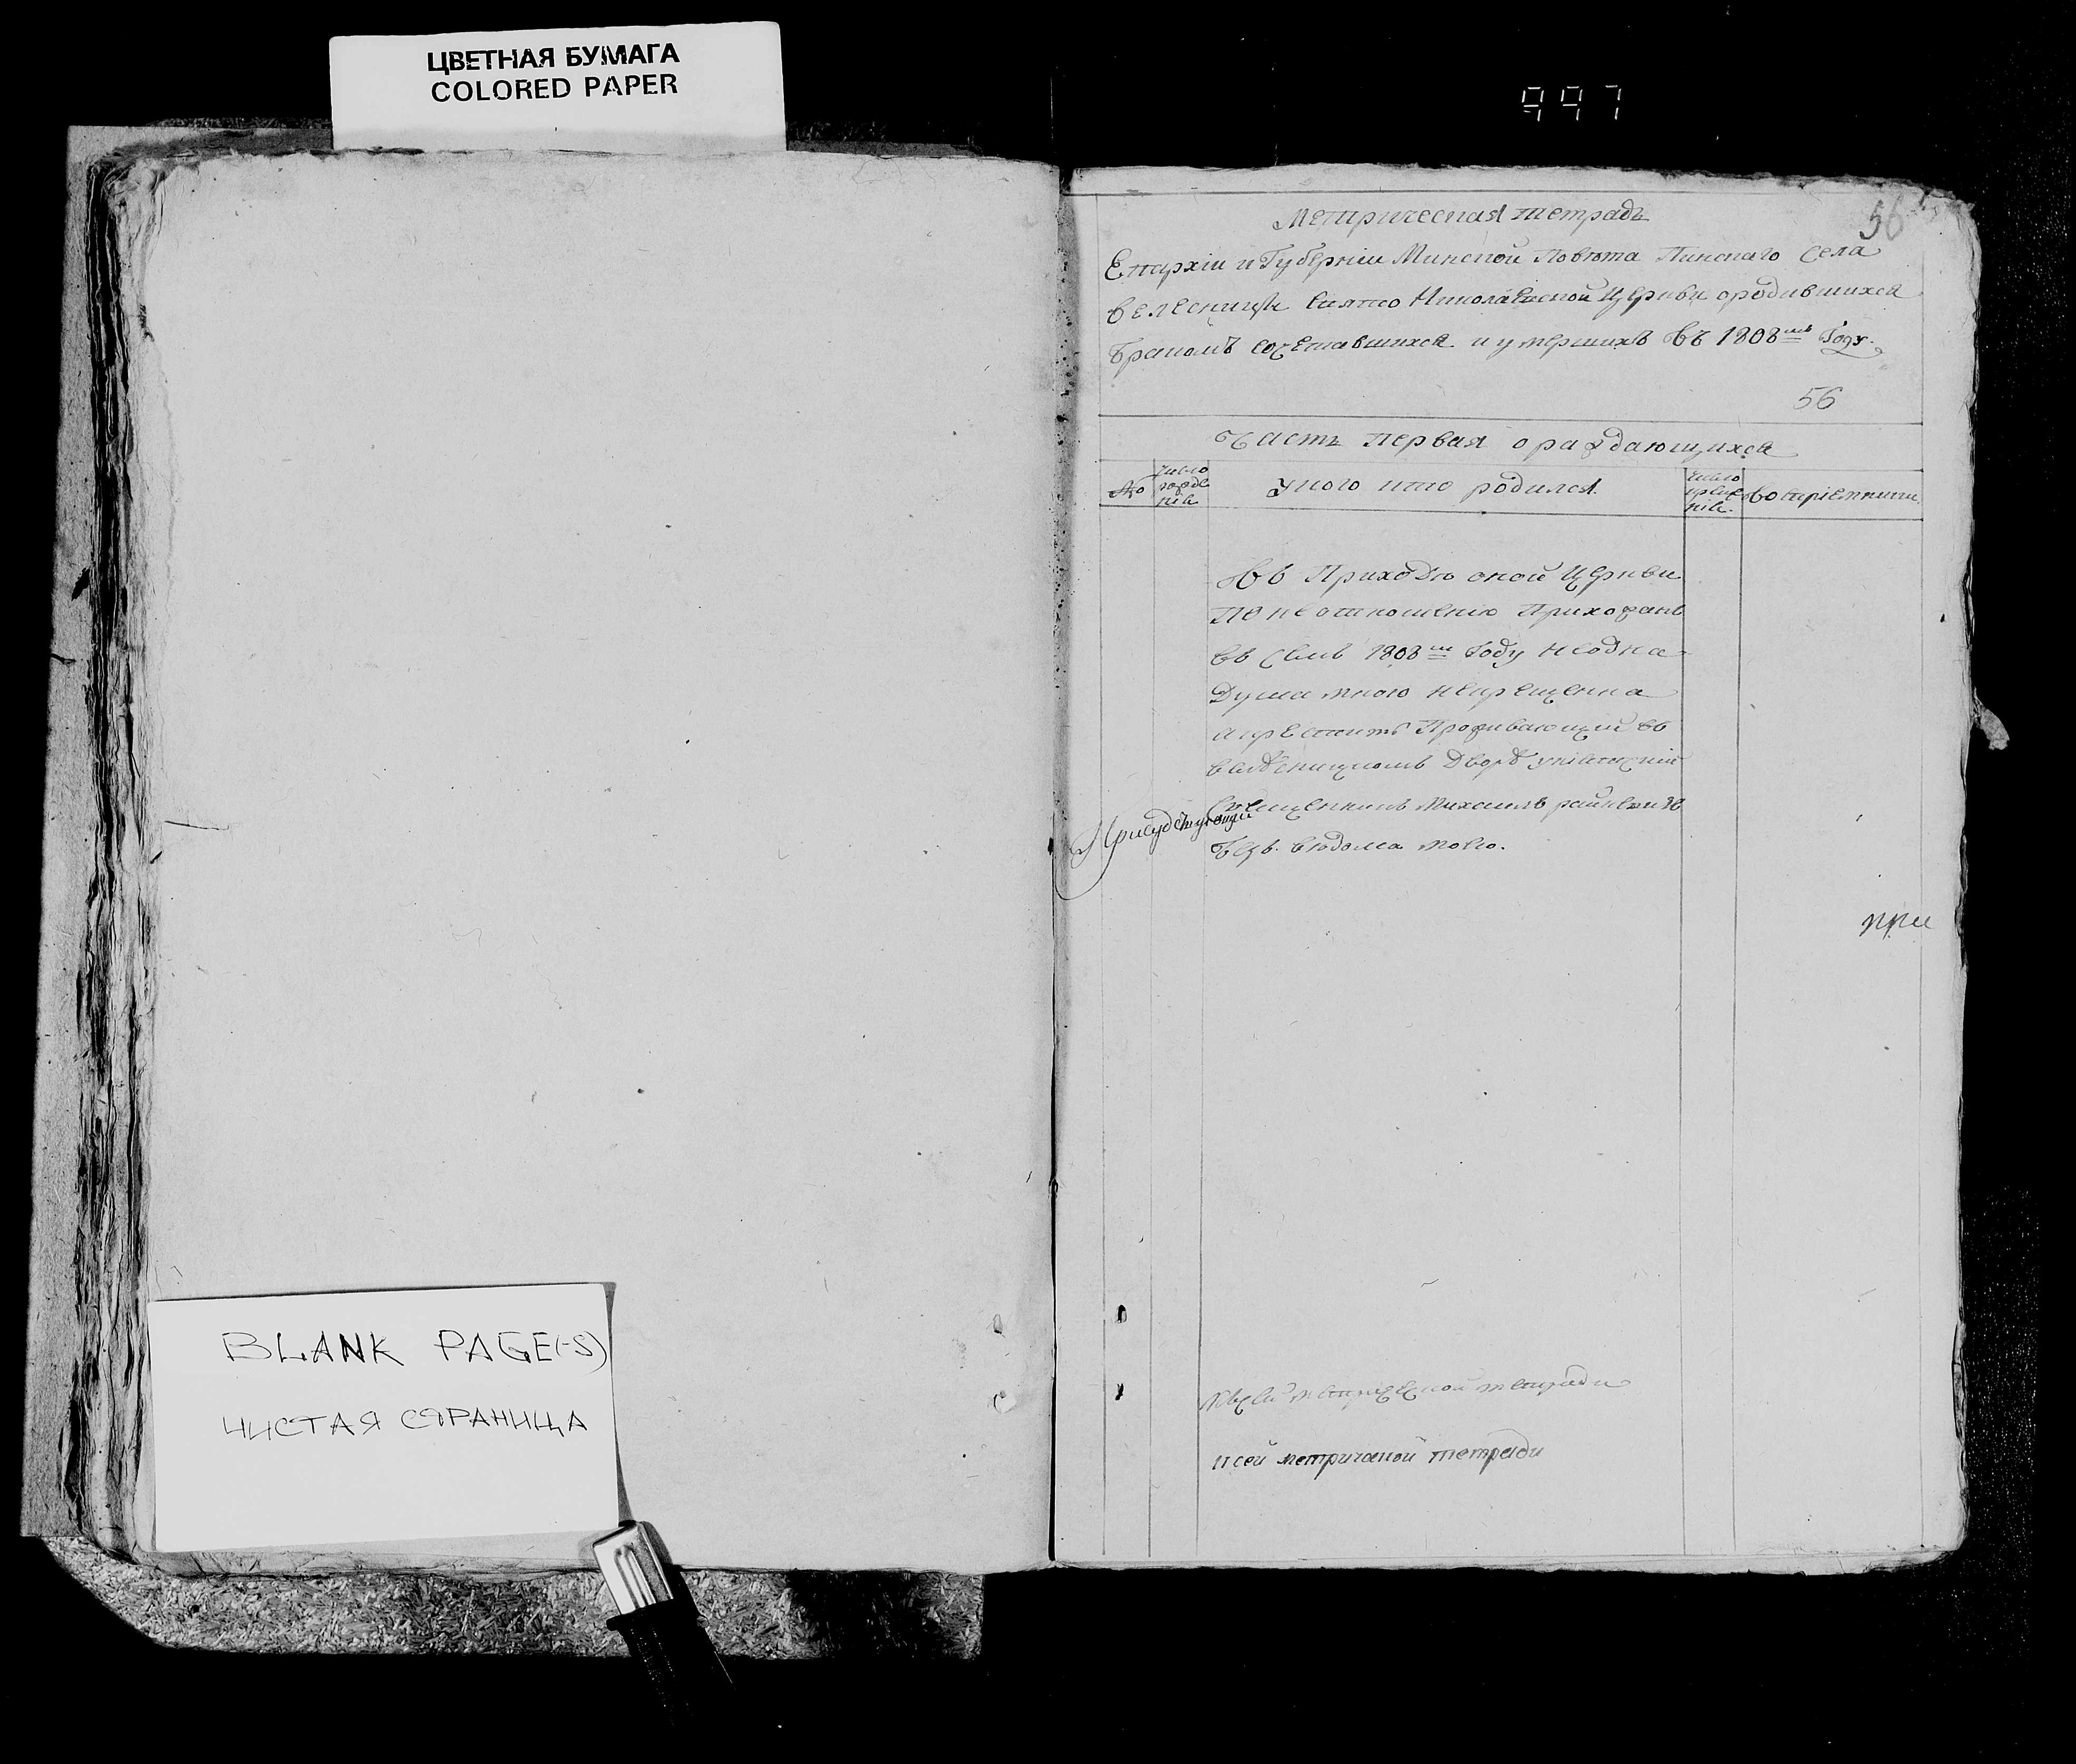 ЦВЕТНАЯ БУМАГА
COLORED PAPER
997
Метрическая тетрадь
56
Епархіи и Губерніи Минской Повѣта Пинскаго Села
Велесницы Свято Николаевской Церкви ородившихся
Бракомъ сочетавшихся и умершихъ Въ 1808мъ Году.
56
Часть первая ораждающихся
№
Число рожденія
Укого кто родился
Число крещенія
Воспріемники
Въ Приходѣ оной Церкви
По неотношенію Прихожанъ
въ семъ 1808м Году неодна
Душа мною некрещенна
акрестить Проживающій въ
Велѣсницкомъ Дворѣ уніатскій
Священникъ Михаилъ
Безъ вѣдома моего.
Присудствующій
при
Ксей метрической тетради
ксей метричной тетради
BLANK PAGE(-S)
ЧИСТАЯ СТРАНИЦА